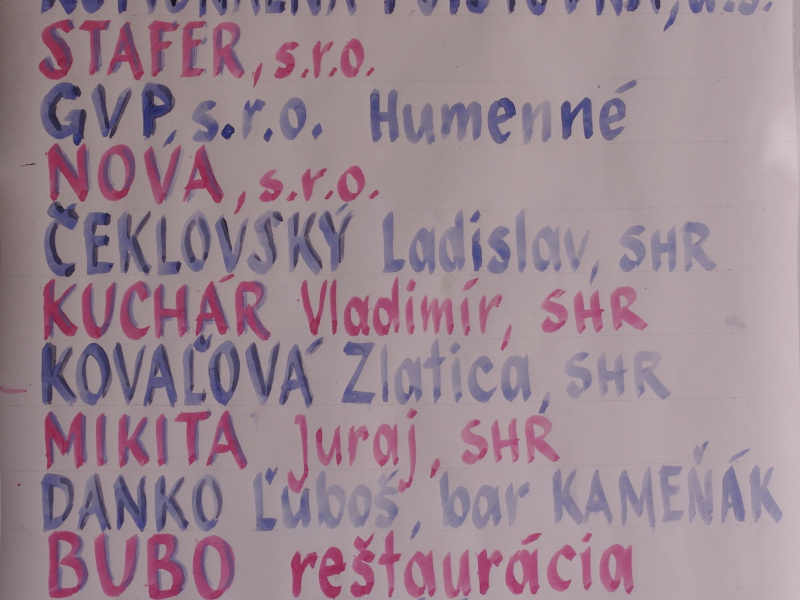 STAFER, s.r.o.
GVP, s.r.o. Humenné
NOVÁ, s.r.o.
ČEKLOVSKÝ Ladislav, SHR
KUCHÁR Vladimír, SHR
KOVAĽOVÁ Zlatica, SHR
MIKITA Juraj, SHR
DANKO Ľuboš, bar KAMEŇÁK
BUBO reštaurácia